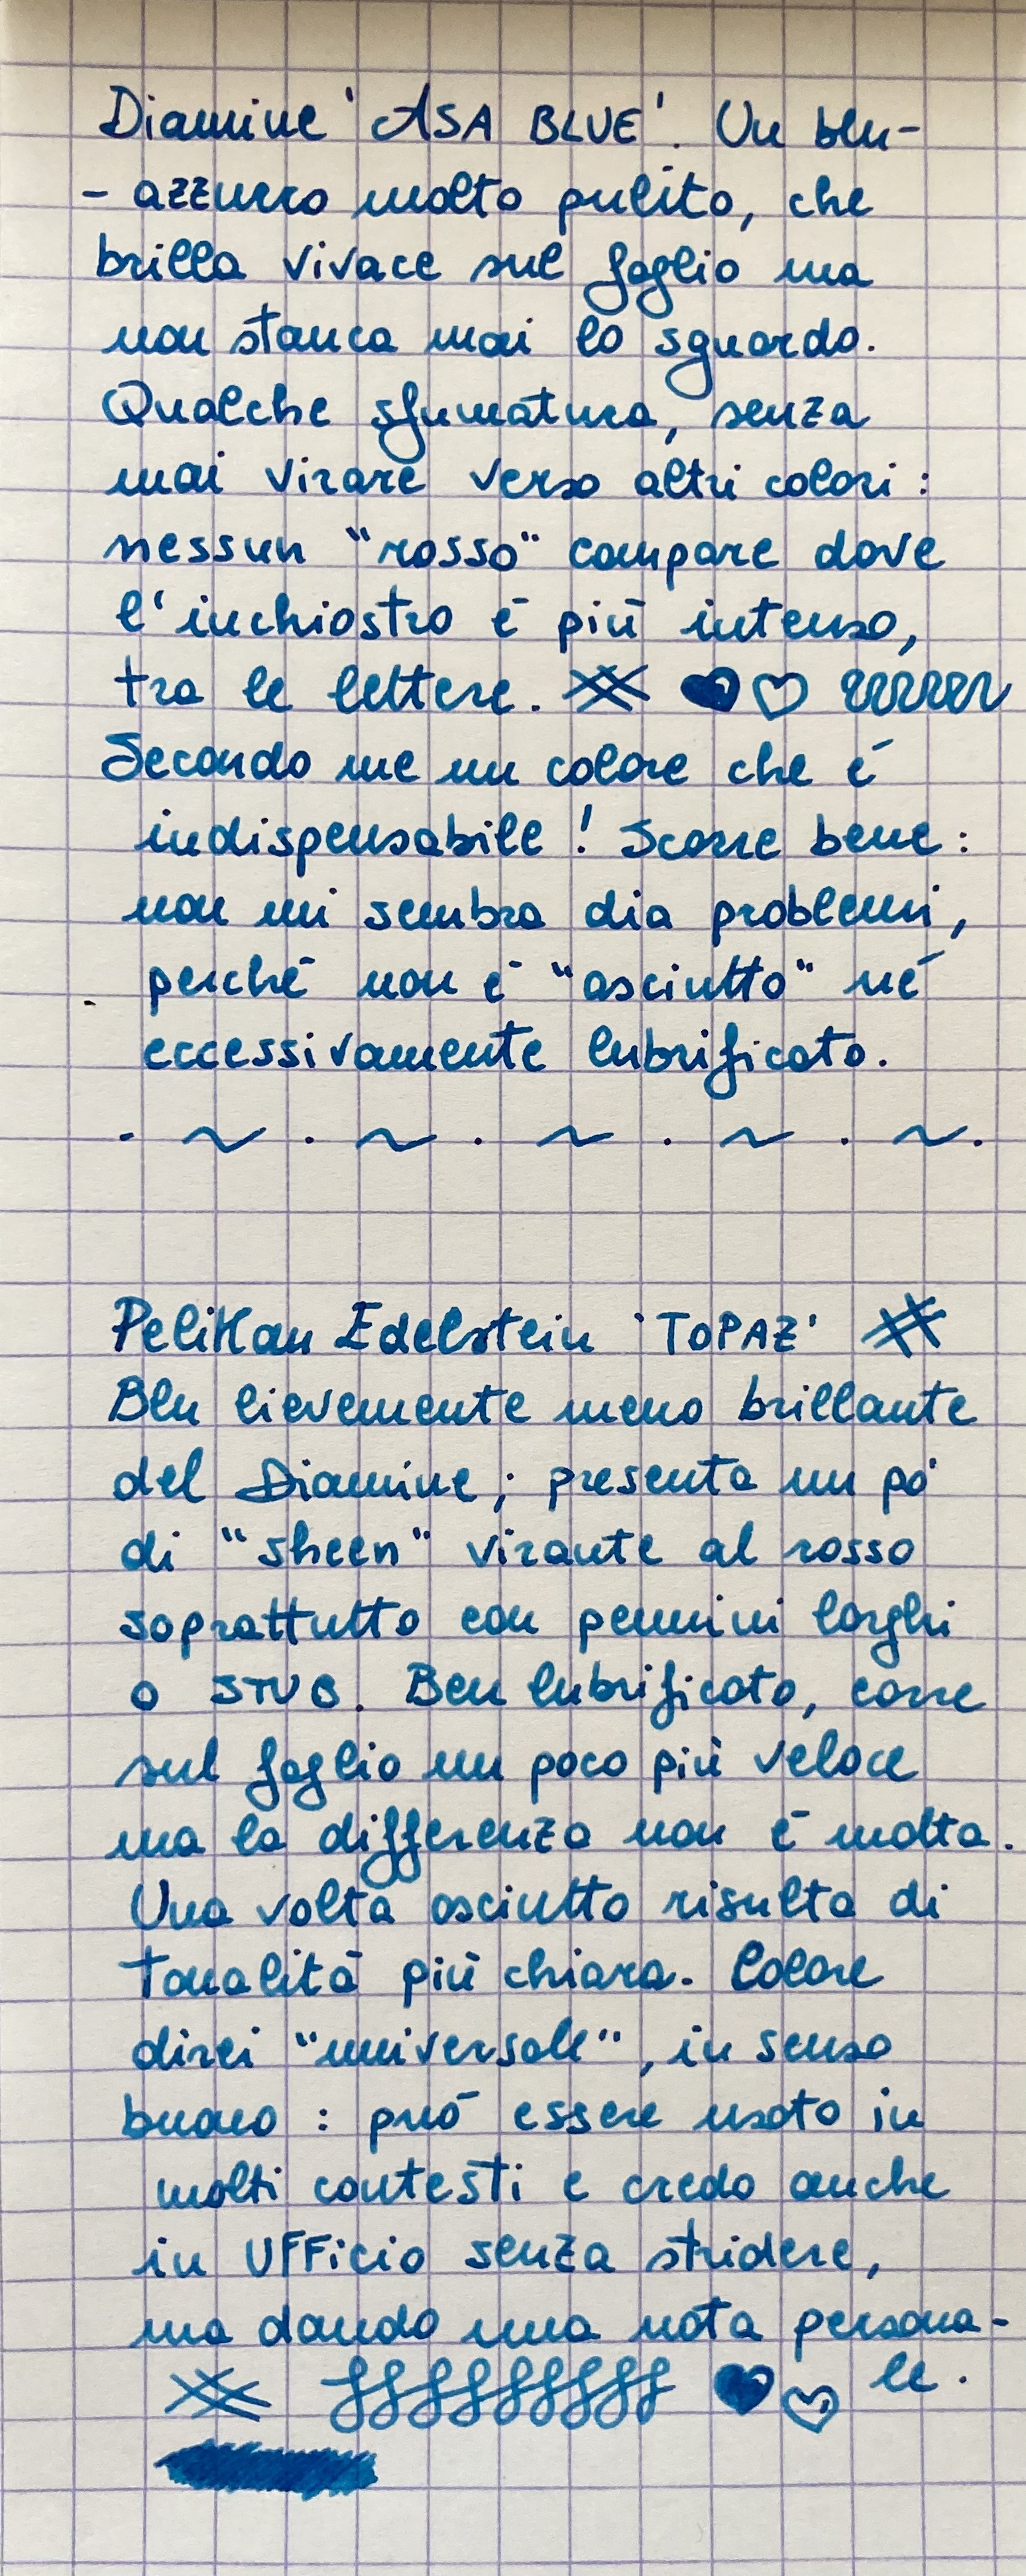 Diamine 'ASA BLUE'. Un blu-
- azzurro molto pulito, che
brilla vivace sul foglio ma
non stanca mai lo sguardo.
Qualche sfumatura, senza
mai virare verso altri colori :
nessun "rosso" compare dove
l'inchiostro è più intenso,
tra le lettere.
Secondo me un colore che è
indispensabile ! Scorre bene :
non mi sembra dia problemi,
perché non è "asciutto" né
eccessivamente lubrificato.
Pelikan Edelstein 'TOPAZ'
Blu lievemente meno brillante
del Diamine ; presenta un pò
di "sheen" virante al rosso
soprattutto con pennini larghi
o STUB. Ben lubrificato, corre
sul foglio un poco più veloce
ma la differenza non è molta.
Una volta asciutto risulta di
tonalità più chiara. Colore
direi "universale", in senso
buono : può essere usato in
molti contesti e credo anche
in UFFicio senza stridere,
ma dando una nota persona-
le.